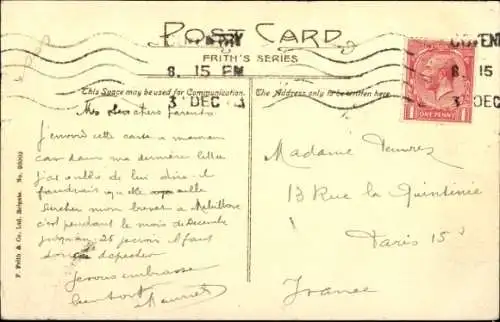 POST CARD
FRITH'S SERIES
COVENTRY
8. 15 PM
3 DEC
COVENT
8. 15
3 DEC
This Space may be used for Communication.
The Address only to be written here.
POSTAGE
ONE PENNY
F. Frith & Co., Ltd., Reigate. No.
Mes chers parents
J'envoie cette carte a maman
car dans ma dernière lettre
j'ai oublié de lui dire il
faudrait qu'elle aille
chercher mon brevet a
c'est pendant le mois de Decembre
jusqu'au 25 je crois il faut
donc se depecher
Je vous embrasse
bien fort Maurice
Madame
13 Rue la Quintinie
Paris 15e
France